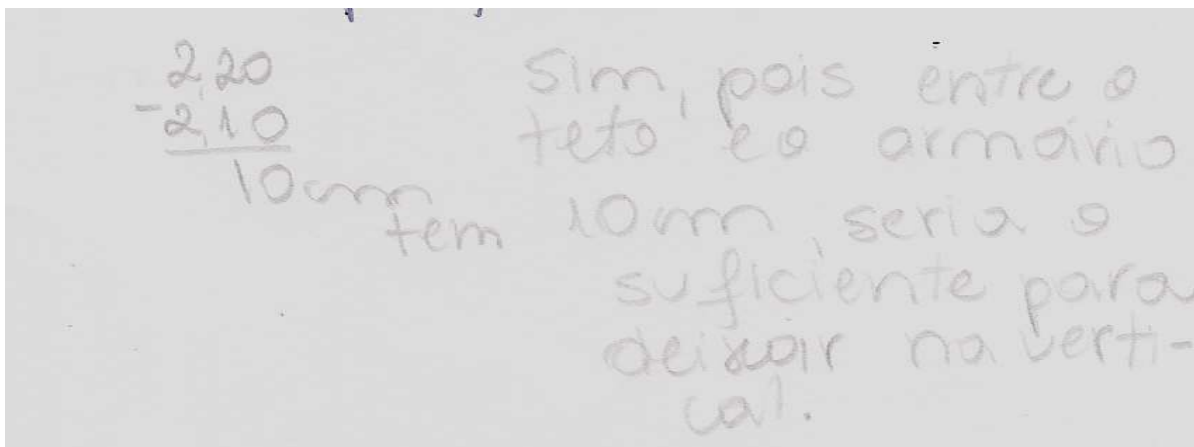 2,20
- 2,10
10cm
Sim, pois entre o
teto e o armário
tem 10cm, seria o
suficiente para
deixar na verti-
cal.